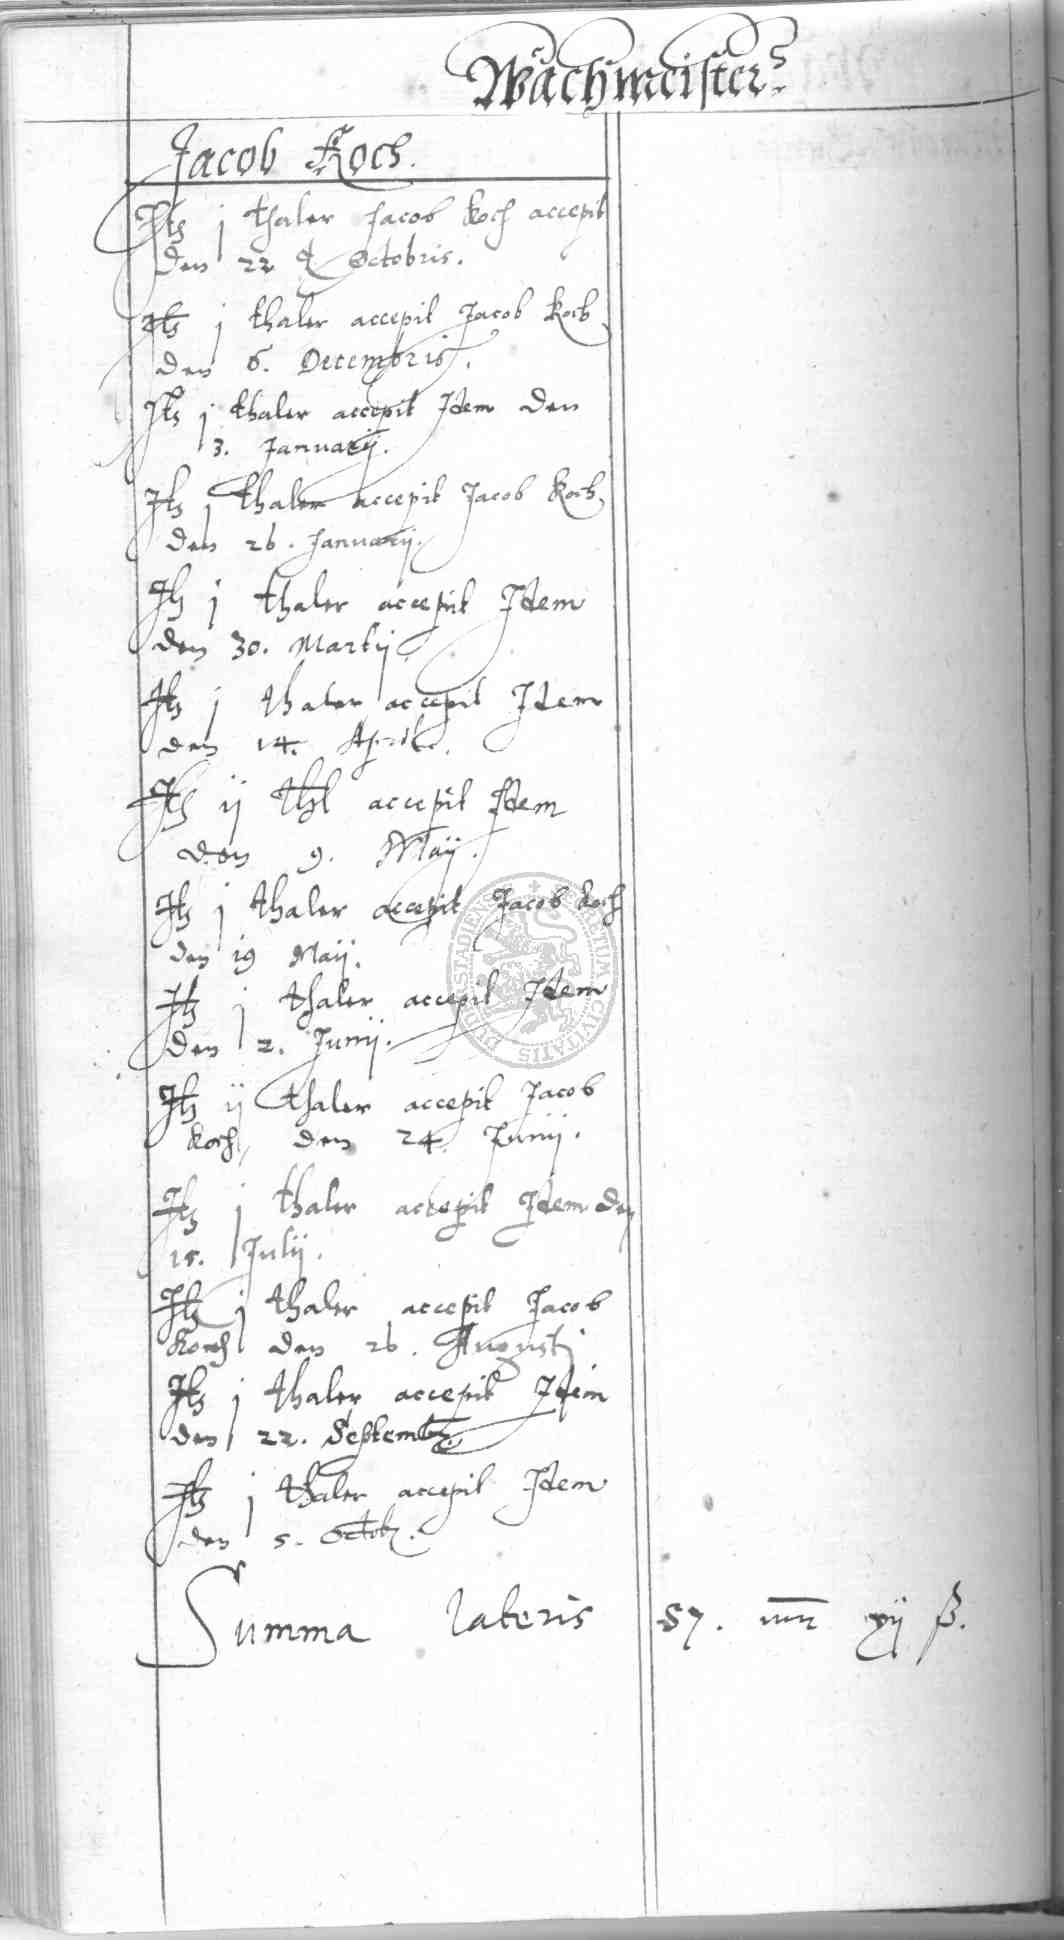 Wachmeister
Jacob Koch.
Itz j thaler Jacob Koch accepit
den 22 Octobris.
Itz j thaler accepit Jacob Koch
den 6. Decembris.
Itz j thaler accepit Idem den
3. Januarij.
Itz j thaler accepit Jacob Koch
den 26. Januarij.
Itz j thaler accepit Idem
den 30. Martij
Itz j thaler accepit Idem
den 14. Aprilis.
Itz ij thl accepit Idem
den 9. Maij.
Itz j thaler accepit Jacob Koch
den 19 Maij.
Itz j thaler accepit Idem
den 2. Junij.
Itz ij thaler accepit Jacob
Koch, den 24. Junij.
Itz j thaler accepit Idem den
15. Julij.
Itz j thaler accepit Jacob
Koch den 26. Augusti
Itz j thaler accepit Idem
den 22. Septemb.
Itz j thaler accepit Idem
den 5. Octob.
Summa lateris 57. mr xij ß.